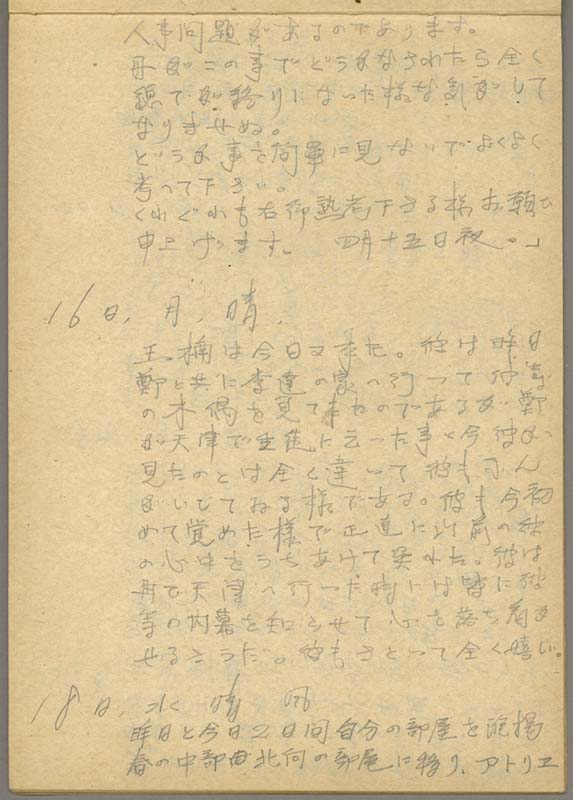 人事問題があるのであります。
再びこの事でどうかなされたら全く
親で が移りになった様な気がして
なりませぬ。
どうか事を簡単に見ないでよくよく
考へて下さい。
くれぐれも右御熟考下さる様お願ひ
申上げます。 四月十五日夜。」
16日，月，晴，
王楠は今日又来た。彼は昨日
鄭と共に李達の家へ行って彼等
の木偶を見て来たのであるが、鄭
が天津で生徒に云った事と今彼が
見たのとは全く違いて彼も
いてゐる様である。彼も今初
めて覚めた様で正直に以前の彼
の心中をうちあけて呉れた。彼は
再び天津へ行った時には皆に彼
等の内幕を知らせて心を落ち着か
せるさうだ。彼もさとって全く嬉しい。
18日，水 晴 風
昨日と今日2日間自分の部屋を
春の中部 北向の部屋に移り，アトリエ